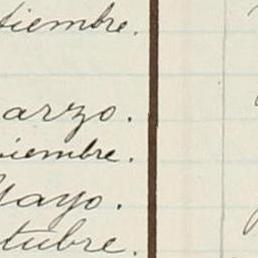 tiembre.
arzo.
viembre.
Mayo.
tubre.